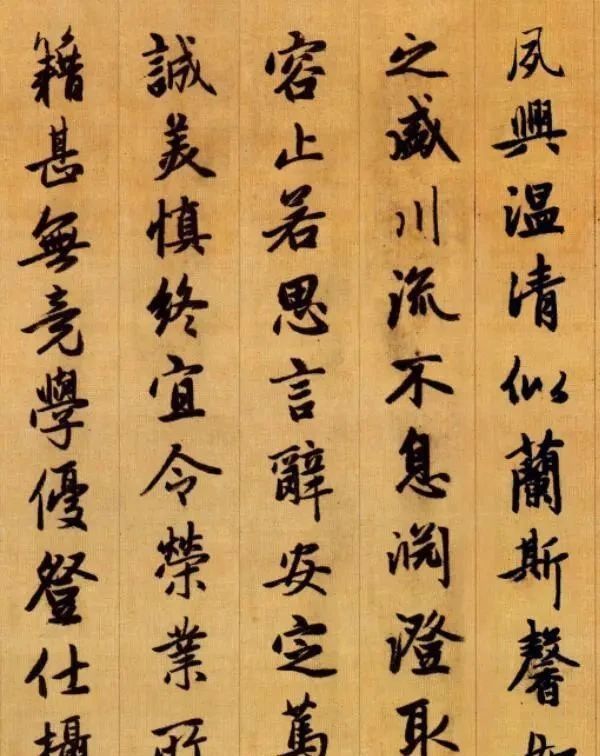 夙興温清似蘭斯馨
之盛川流不息淵澄取
容止若思言辭安定篤
誠美慎終宜令榮業所
籍甚無竟學優登仕攝